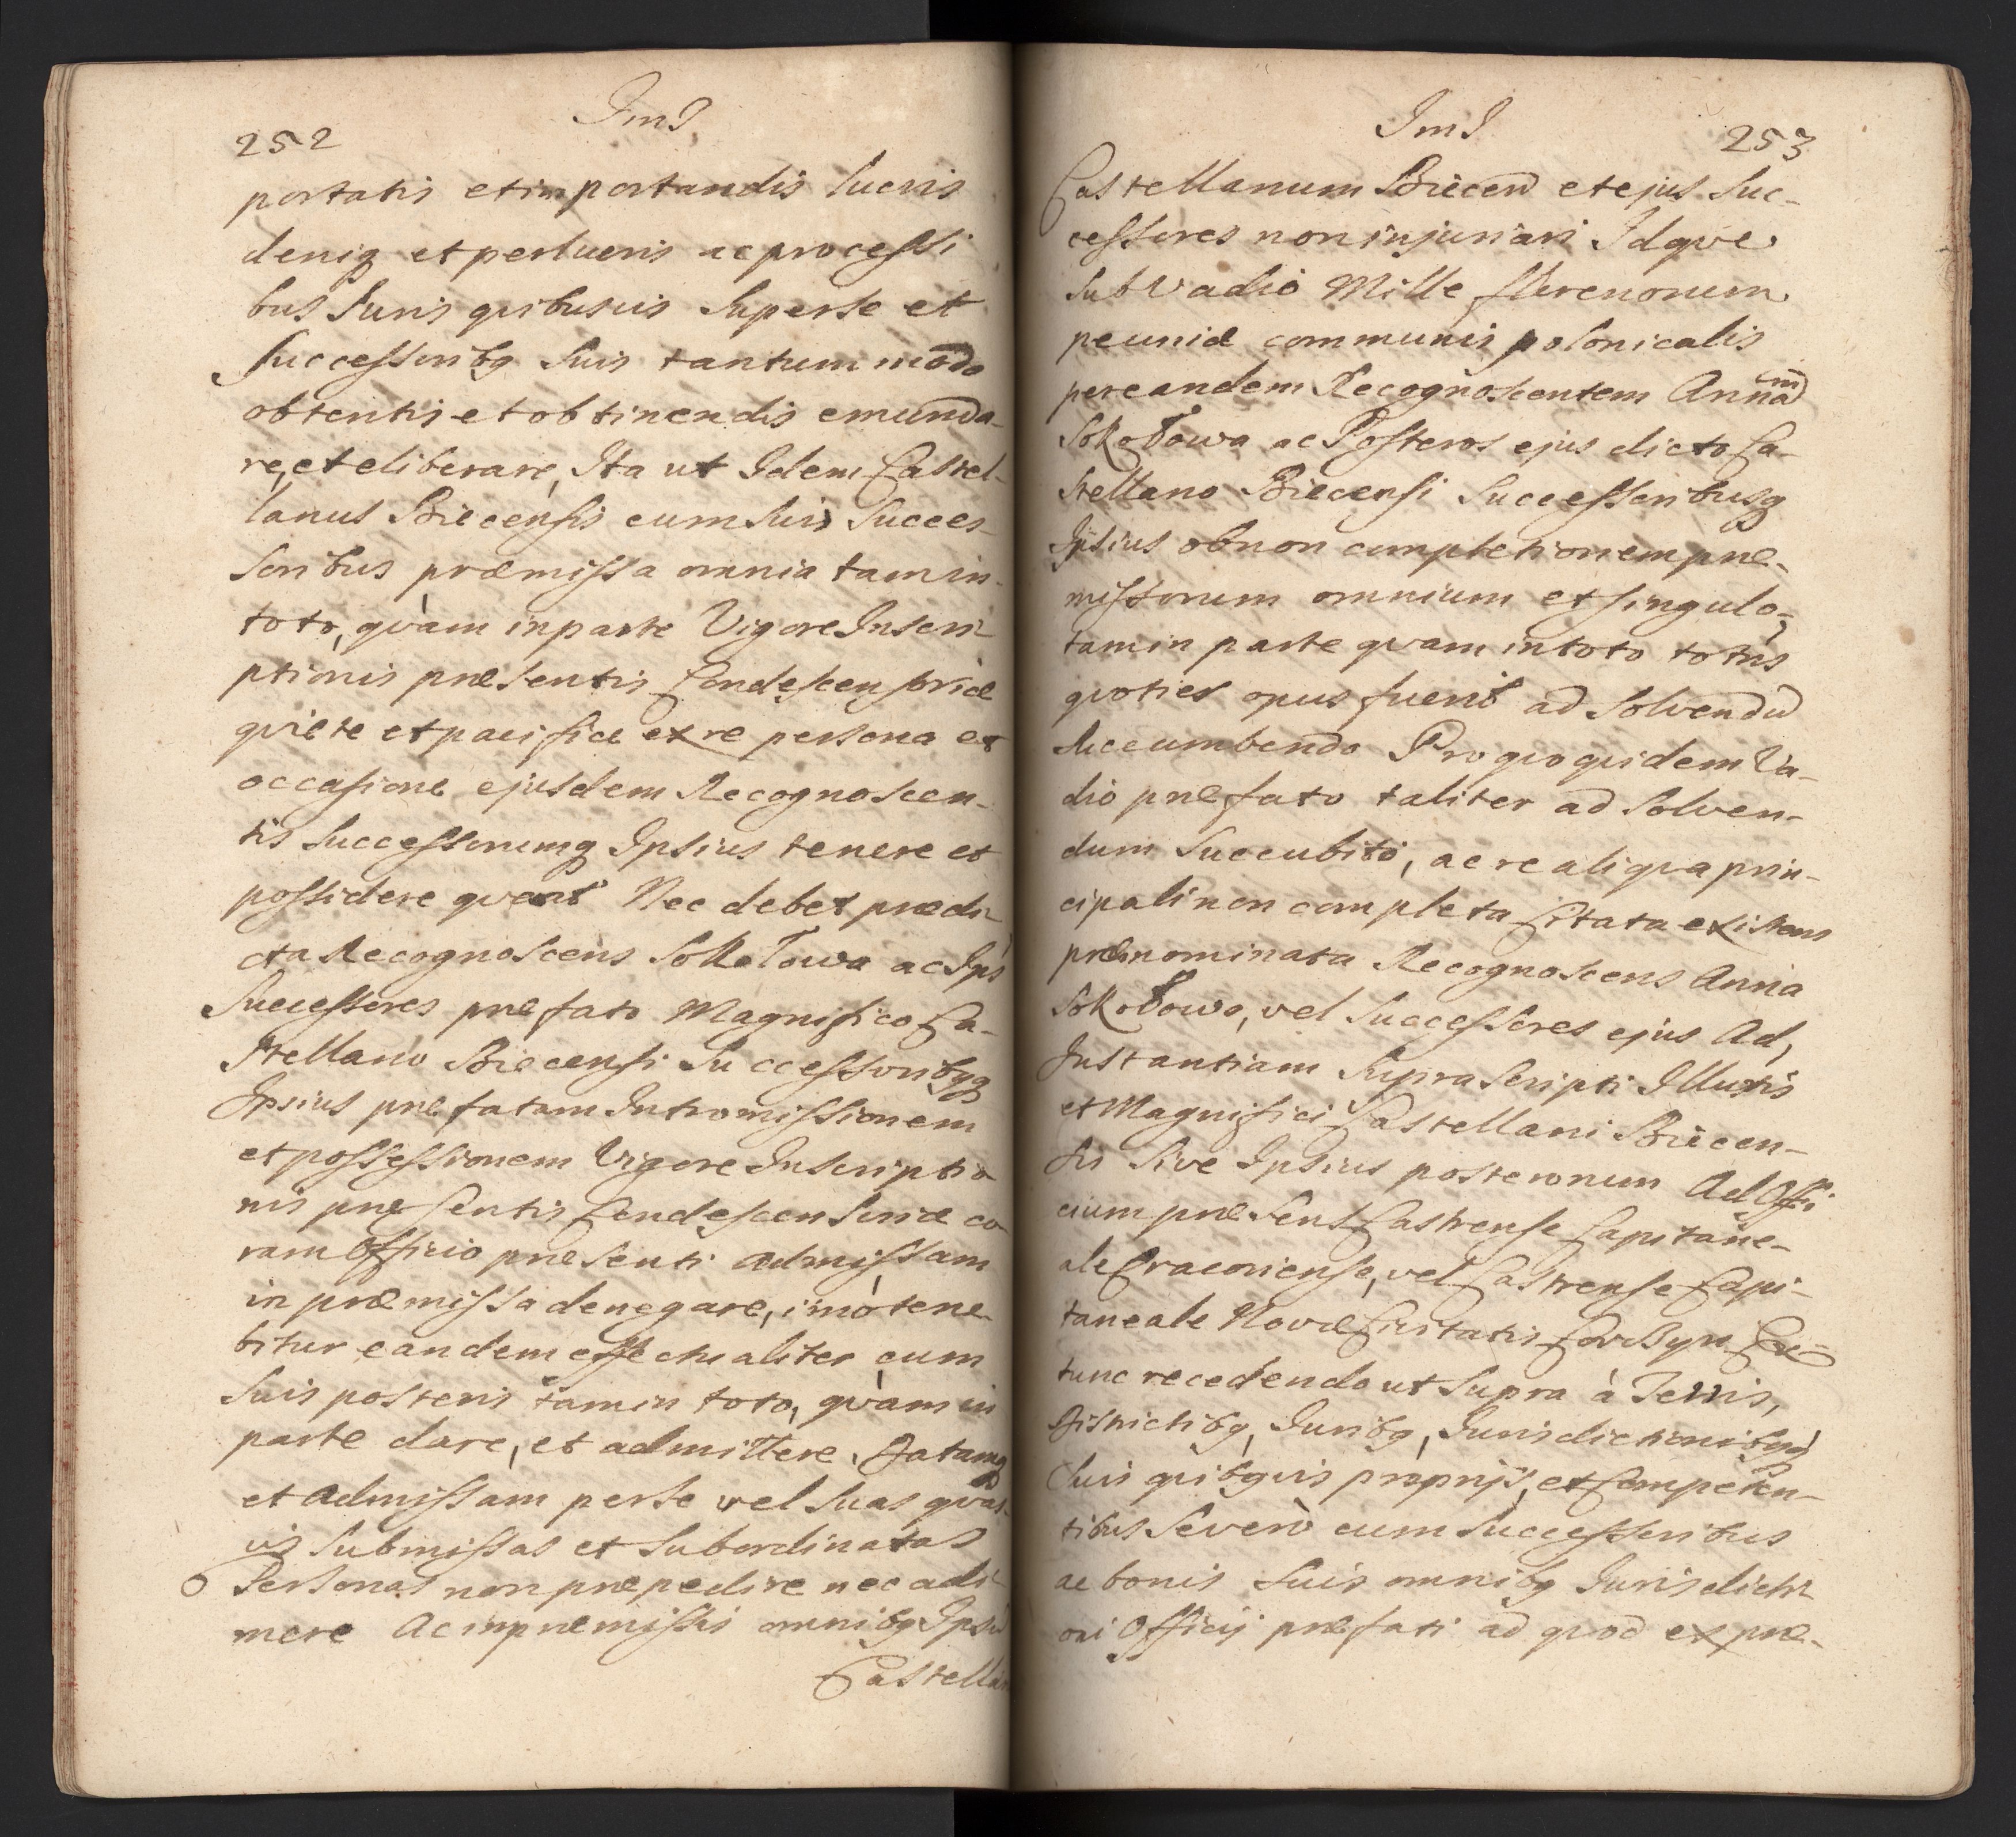 252
ImJ
portatis et importandis lucris
deniq et perlucris ac processi
bus Juris quibusvis super se et
Successoribq suis tantummodo
obtentis et obtinendis emunda-
re, et eliberare, Ita ut Idem Castel-
lanus Biecensis cum suis Succes-
soribus præmissa omnia tam in
toto, qvàm in parte Vigore Inscri-
ptionis præsentis Condescensoriæ
qviete et pacifice ex re persona et
occasione ejusdem Recognoscen-
tis Successorumq Ipsius tenere et
possidere qveat Nec debet prædi-
cta Recognoscens Sokołowa ac Ips
Successores præfato Magnifico Ca-
stellano Biecensi Successoribqq
Ipsius præfatam Intromissionem
et possessionem Vigore Inscriptio-
nis præsentis Condescensoriæ co-
ram Officio præsenti admissam
in præmissa denegare, imò tene-
bitur eandem effectualiter cum
suis posteris tam in toto, qvàm in
parte dare, et admittere. Datamq
et admissam per se vel suas qvas-
vis submissas et subordinatas
Personas non præpedire nec adi-
mere Ac in præmissis omnibq Ipsū
Castella
ImJ
253
Castellanum Biecen et ejus Suc-
cessores non injuriari Idqve
sub Vadio Mille florenorum
pecuniæ communis polonicalis
per eandem Recognoscentem Annam
Sokołowa ac Posteros ejus dicto Ca-
stellano Biecensi Successoribusq
Ipsius ob non completionem præ-
missorum omnium et singulo-
tam in parte qvam in toto toties
qvoties opus fuerit ad solvendū
succumbendo Pro qvo qvidem Va-
dio præfato taliter ad solven-
dum Succubito, ac re aliqva prin-
cipali non completa Citata existens
prænominata Recognoscens Anna
Sokołowa, vel Successores ejus Ad,
Instantiam suprascripti Illustris
et Magnifici Castellani Biecen-
sis sive Ipsius posterorum Ad Offi-
cium præsens Castrense Capitane-
ale Cracoviense, vel Castrense Capi-
taneale Novæ Civitatis Corczyn Ex
tunc recedendo ut supra à Terris,
Districtibq, Juribq, Jurisdictionibqq
suis qvibqvis proprijs, et Competen-
tibus severò cum Successoribus
ac bonis suis omnibq Jurisdicti-
oni Officij præfati ad qvod ex præ-